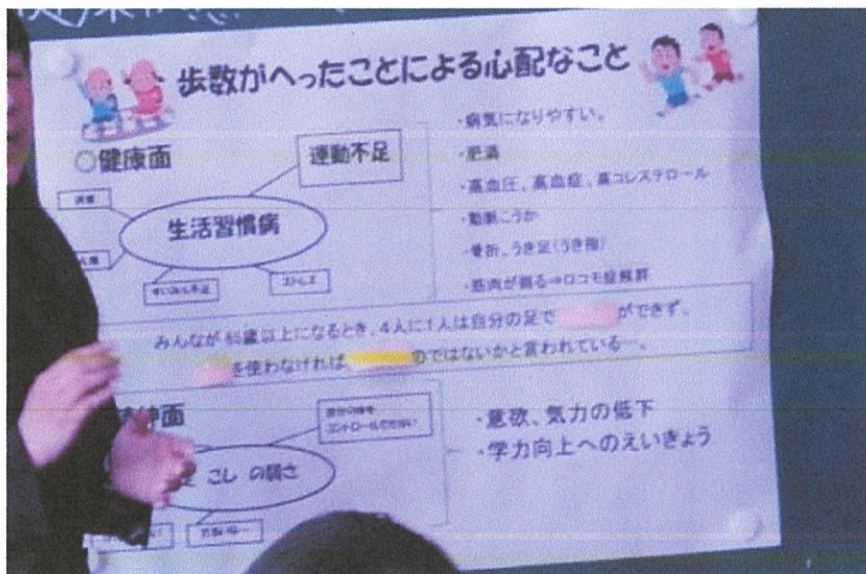 歩数がへったことによる心配なこと
○健康面
運動不足
生活習慣病
すいみん不足
ストレス
・病気になりやすい。
・肥満
・高血圧、高血症、高コレステロール
・動脈こうか
・骨折、うき足(うき指)
・筋肉が弱る⇒ロコモ症候群
みんなが65歳以上になるとき、4人に1人は自分の足で ができず、
を使わなければ のではないかと言われている…。
神面
コントロールできない
こし の弱さ
・意欲、気力の低下
・学力向上へのえいきょう